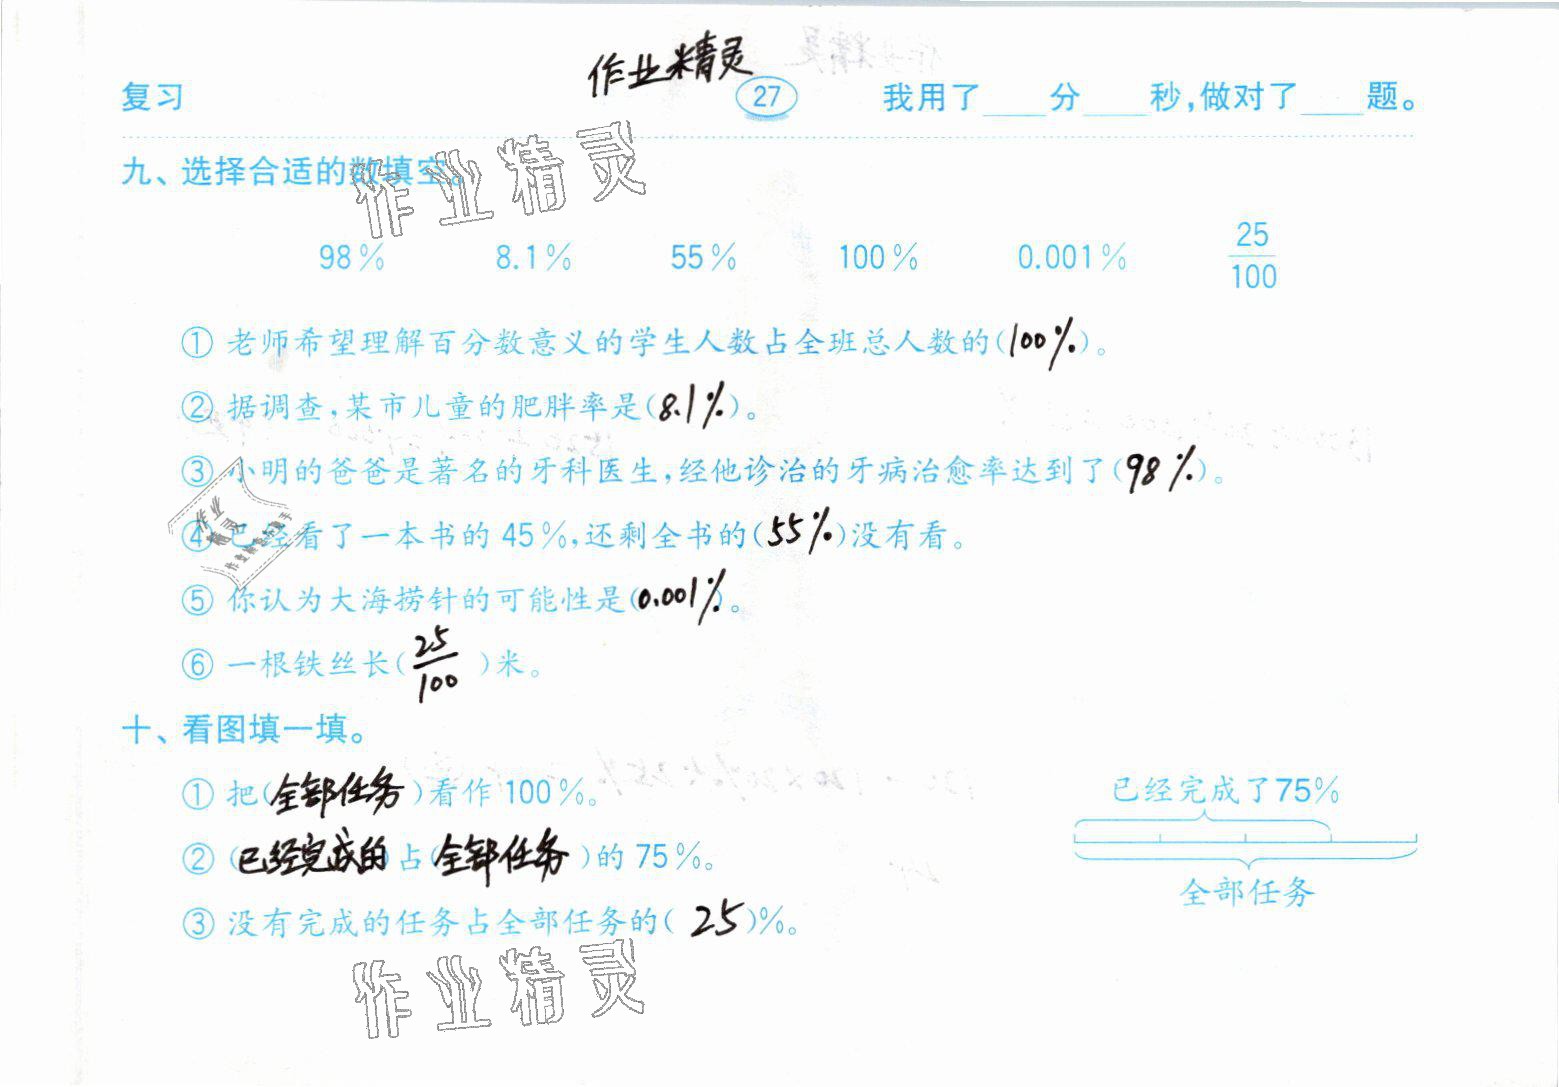 作业精灵
复习 27 我用了____分____秒,做对了____题。
九、选择合适的数填空。
作业精灵
98% 8.1% 55% 100% 0.001% 25/100
① 老师希望理解百分数意义的学生人数占全班总人数的(100%)。
② 据调查,某市儿童的肥胖率是(8.1%)。
③ 小明的爸爸是著名的牙科医生,经他诊治的牙病治愈率达到了(98%)。
④ 已经看了一本书的45%,还剩全书的(55%)没有看。
⑤ 你认为大海捞针的可能性是(0.001%)。
⑥ 一根铁丝长(25/100)米。
作业
精灵
十、看图填一填。
① 把(全部任务)看作100%。
② (已经完成的)占(全部任务)的75%。
③ 没有完成的任务占全部任务的(25)%。
已经完成了75%
全部任务
作业精灵